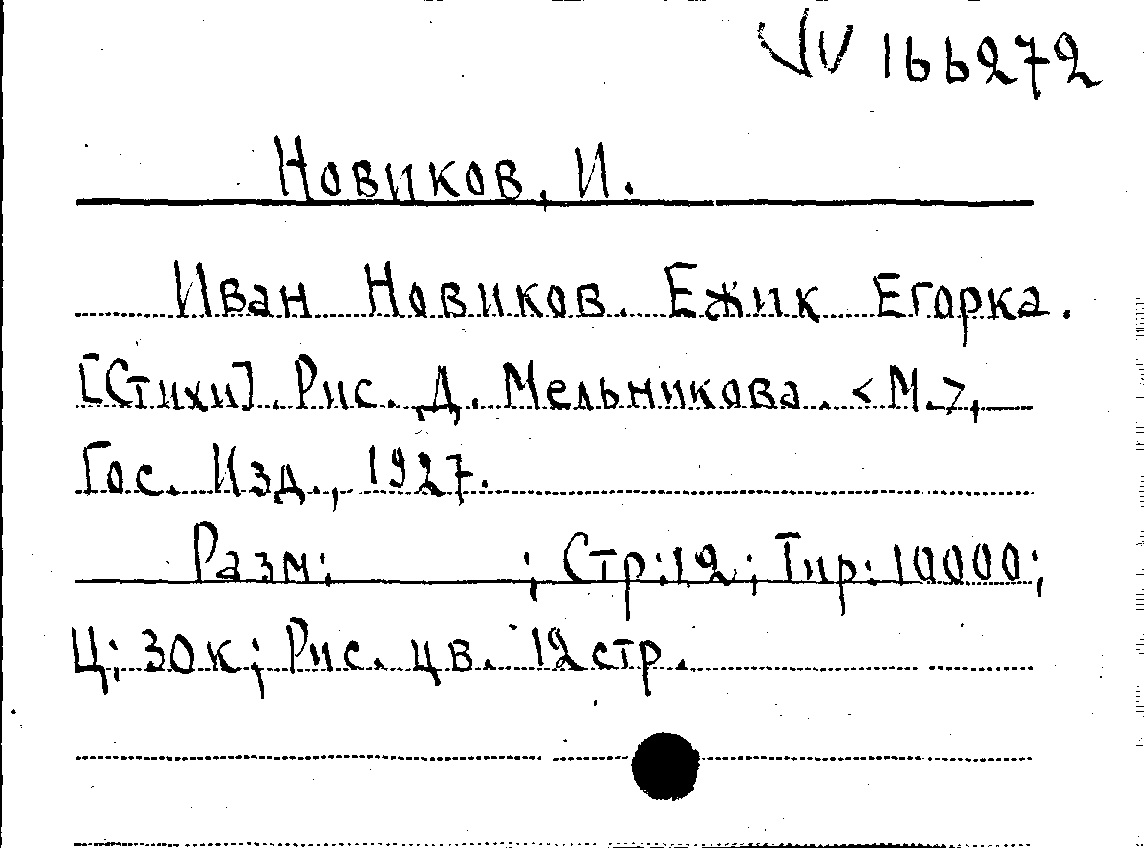 166272
Новиков, И.
Иван Новиков. Ежик Егорка.
[Стихи]. Рис. Д. Мельникова. <М.>,
Гос. Изд., 1927.
Разм: ; Стр:12; Тир: 10000;
Ц: 30к; Рис. цв. 12 стр.